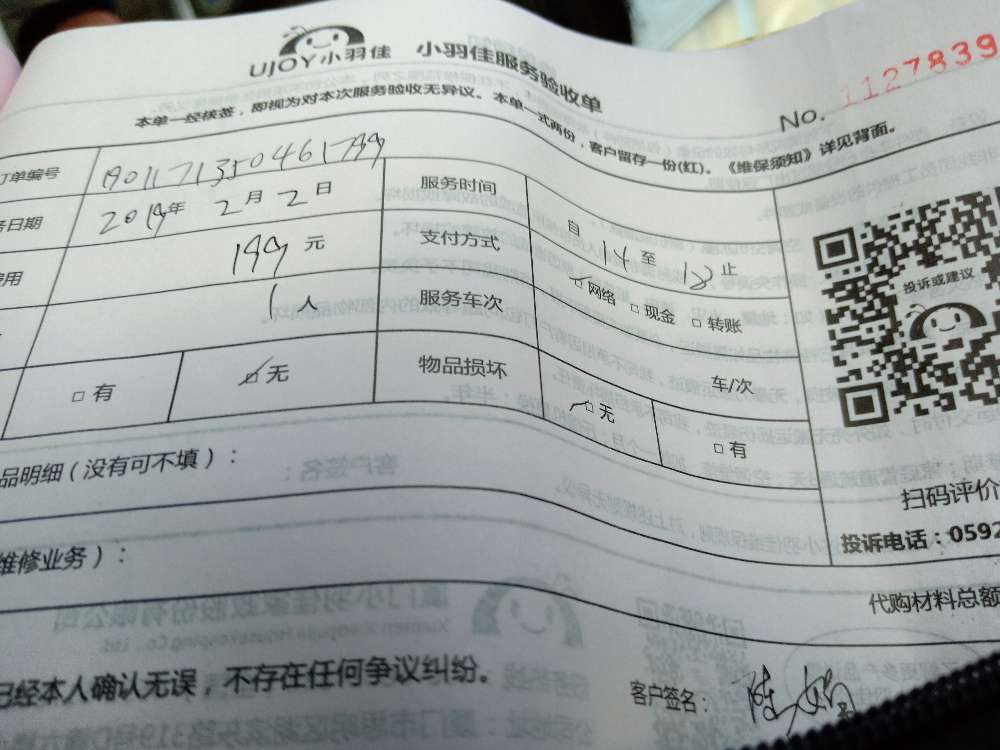 UJOY小羽佳 小羽佳服务验收单
No. 1127839
本单一经核签，即视为对本次服务验收无异议。本单一式两份，客户留存一份(红)。《维保须知》详见背面。
订单编号
日期 2019年 2月 2日 服务时间 自 14 至 止
用 199元 支付方式 □网络 □现金 □转账
1人 服务车次 车/次
□有 □无 物品损坏 □无 □有
投诉或建议
品明细（没有可不填）：
扫码评价
维修业务）：
投诉电话：0592
代购材料总额
已经本人确认无误，不存在任何争议纠纷。
客户签名：